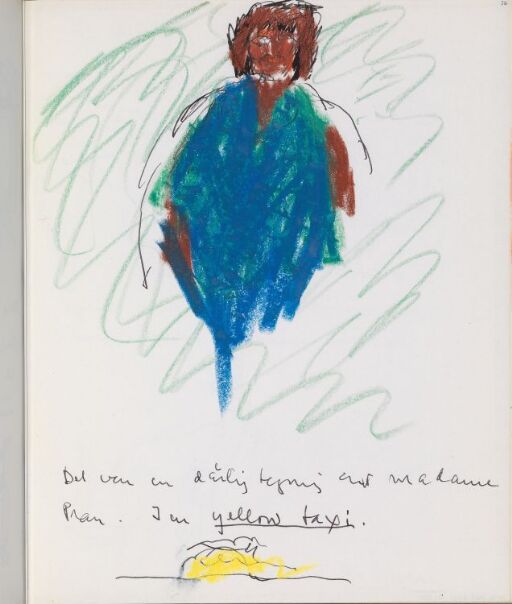 Det var en dårlig tegning mot madame
Pran. I en yellow taxi.